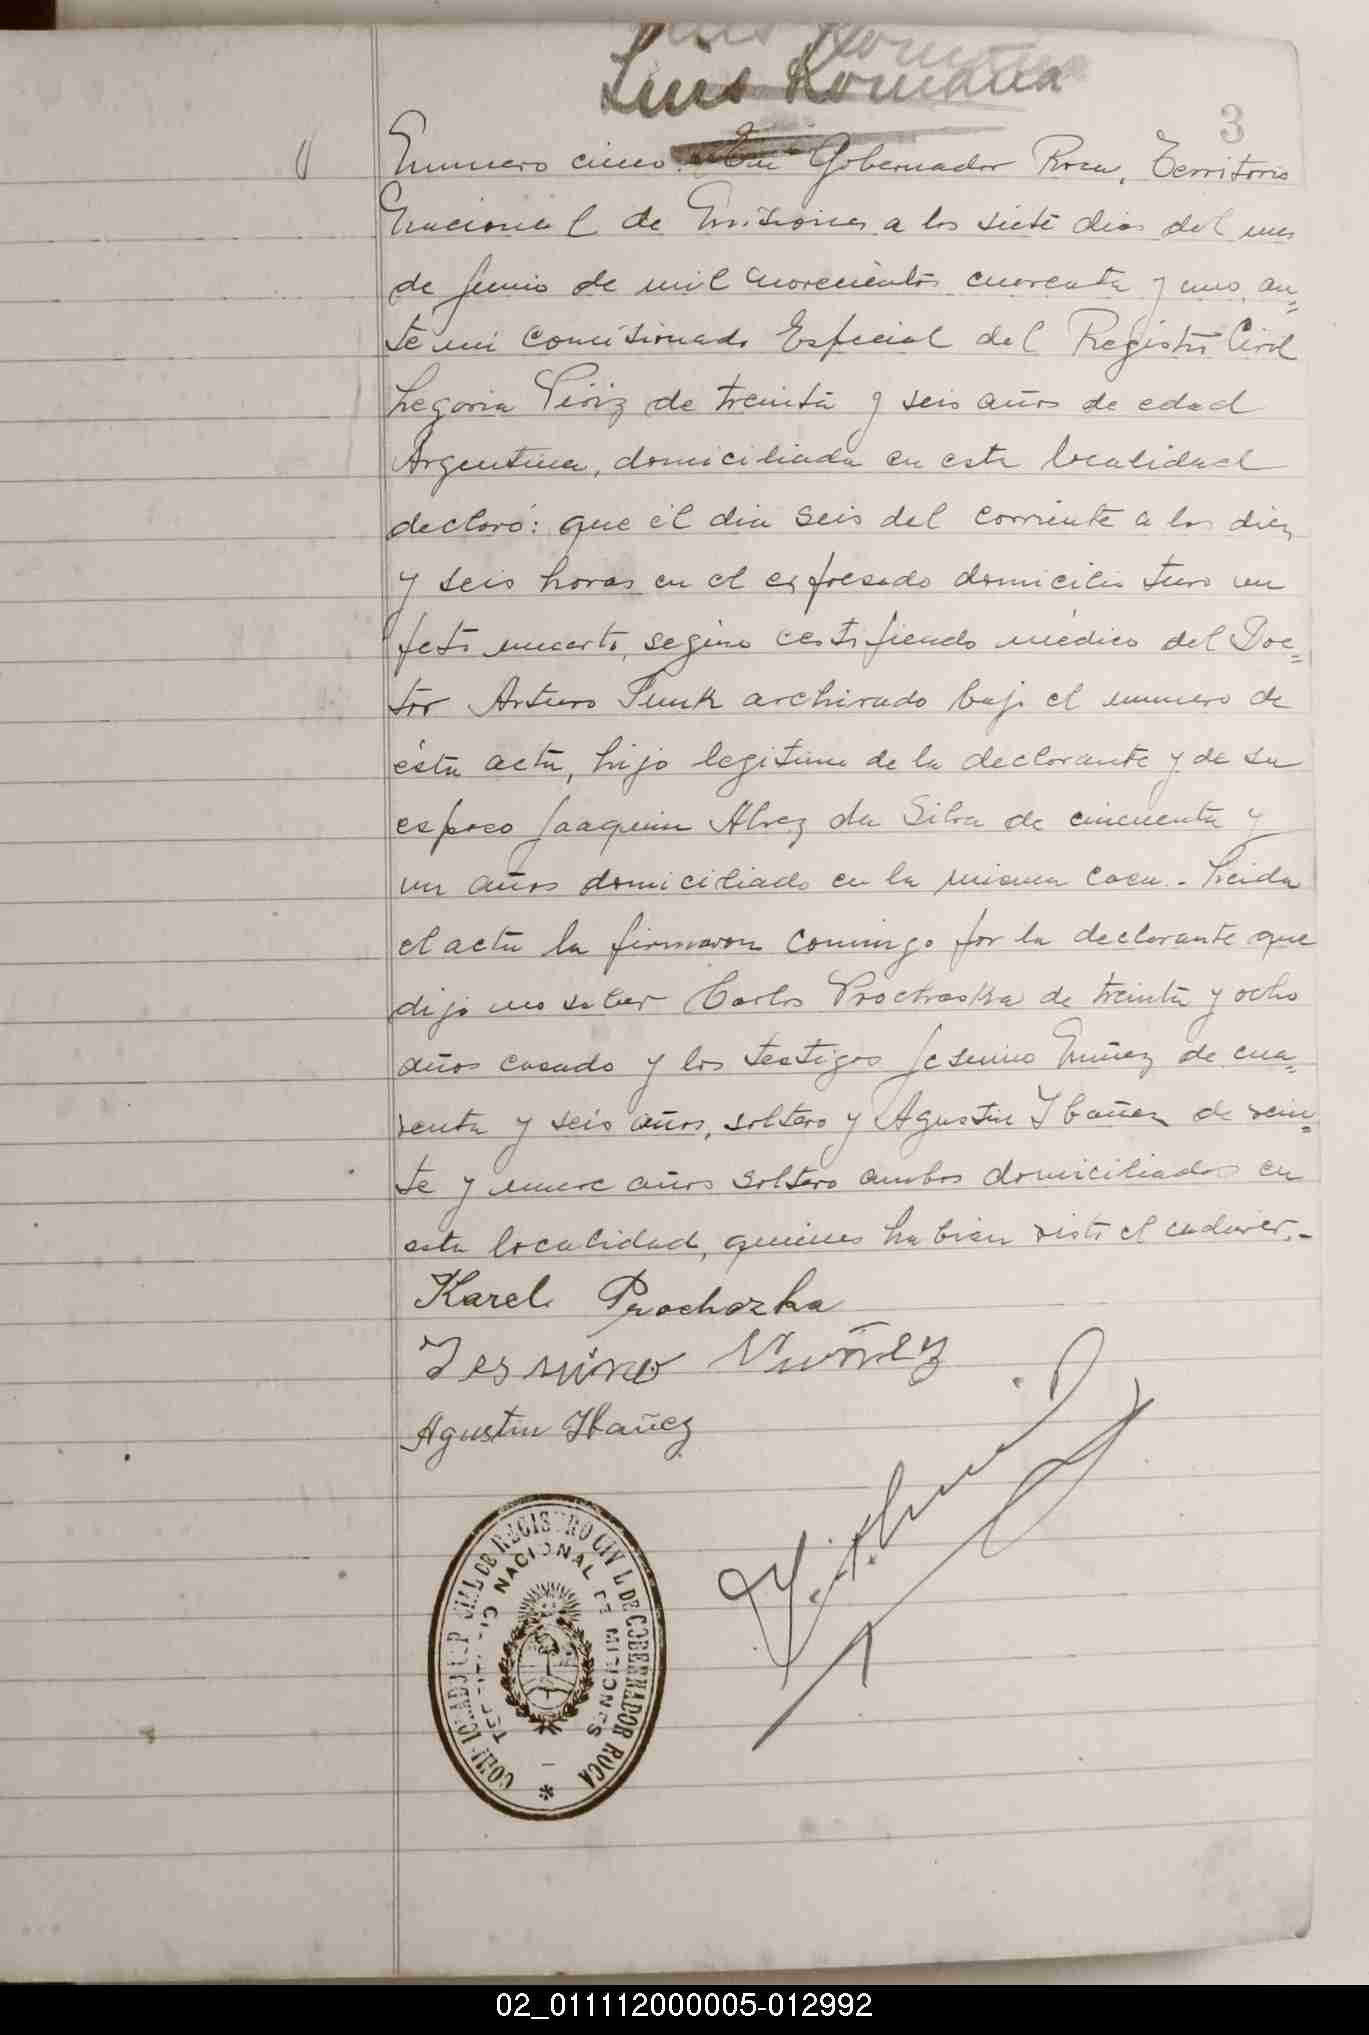 Luis Romaña
3
Numero cinco. En Gobernador Roca, Territorio
Nacional de Misiones a los siete dias del mes
de Junio de mil novecientos cuarenta y uno, an=
te mi Comisionado Especial del Registro Civil
de treinta y seis años de edad
Argentina, domiciliada en esta localidad
declaró: que él dia seis del corriente a las diez
y seis horas en el expresado domicilio tuvo un
feto muerto, según certificado médico del Doc=
tor Arturo archivado bajo el numero de
ésta acta, hijo legitimo de la declarante y de su
esposo Joaquin Alvez da Silva de cincuenta y
un años domiciliado en la misma casa.- Leida
el acta la firmaron conmigo por la declarante que
dijo no saber Carlos Prochaska de treinta y ocho
años casado y los testigos Jesuino Nuñez de cua=
renta y seis años, soltero y Agustin Ibañez de vein=
te y nueve años soltero ambos domiciliados en
esta localidad, quienes habian visto el cadaver.-
Karel Prochazka
Jesuino Nuñez
Agustin Ibañez
REGISTRO CIVIL DE GOBERNADOR ROCA
TERRITORIO NACIONAL DE MISIONES
02_011112000005-012992